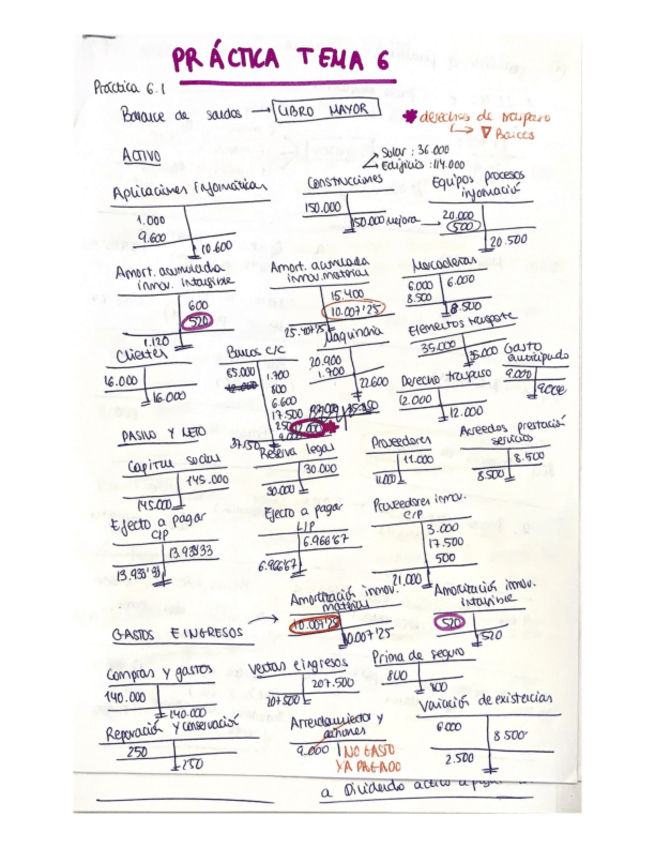 PRÁCTICA TEMA 6
Práctica 6.1
Balance de saldos → LIBRO MAYOR
* derechos de traspaso
↳ ∇ Bancos
ACTIVO
Solar : 36.000
Edificio : 114.000
Aplicaciones Informáticas
Construcciones
Equipos procesos información
1.000
9.600
10.600
150.000
150.000 mejora →
20.000
500
20.500
Amort. acumulada inmov. intangible
Amort. acumulada inmov. material
Mercaderías
600
520
1.120
15.400
10.007'25
25.407'25
6.000
8.500
6.000
8.500
Clientes
Bancos c/c
Maquinaria
Elementos transporte
Gasto anticipado
16.000
16.000
65.000
1.700
800
6.600
17.500
250
37.150
20.900
1.700
22.600
35.000
35.000
9.000
9.000
Derecho traspaso
12.000
12.000
PASIVO Y NETO
Capital social
Reserva legal
Proveedores
Acreedos prestación servicios
145.000
145.000
30.000
30.000
11.000
11.000
8.500
8.500
Efecto a pagar C/P
Efecto a pagar L/P
Proveedores inmov. C/P
13.933'33
13.933'33
6.966'67
6.966'67
3.000
17.500
500
21.000
GASTOS E INGRESOS
Amortización inmov. material
Amortización inmov. intangible
10.007'25
10.007'25
520
520
Compras y gastos
Ventas e ingresos
Prima de seguro
Variación de existencias
140.000
140.000
207.500
207.500
800
800
6.000
8.500
2.500
Reparación y conservación
Arrendamientos y cánones
250
250
9.000
NO GASTO
YA PAGADO
a Dividendo activo a